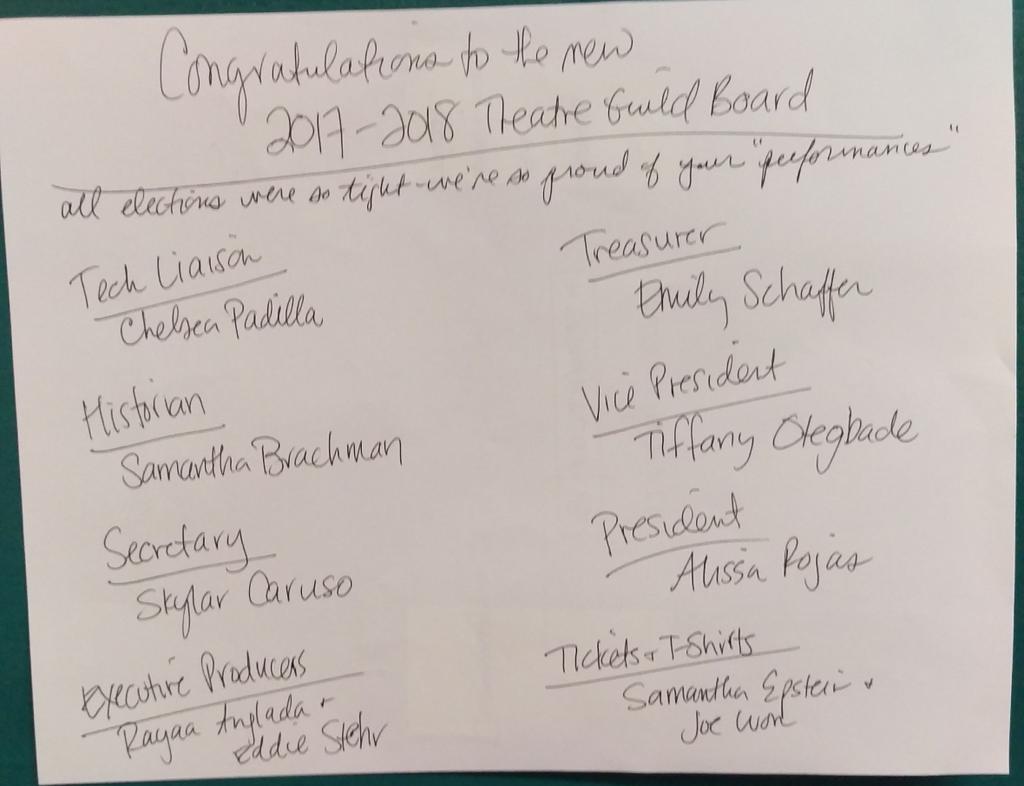 Congratulations to the new
2017-2018 Theatre Guild Board
all elections were so tight-we're so proud of your "performances"
Tech Liaison
Chelsea Padilla
Historian
Samantha Brachman
Secretary
Skylar Caruso
Executive Producers
Rayaa Anglada +
Eddie Stehr
Treasurer
Emily Schaffer
Vice President
Tiffany Otegbade
President
Alissa Rojas
Tickets + T-Shirts
Samantha Epstein +
Joe